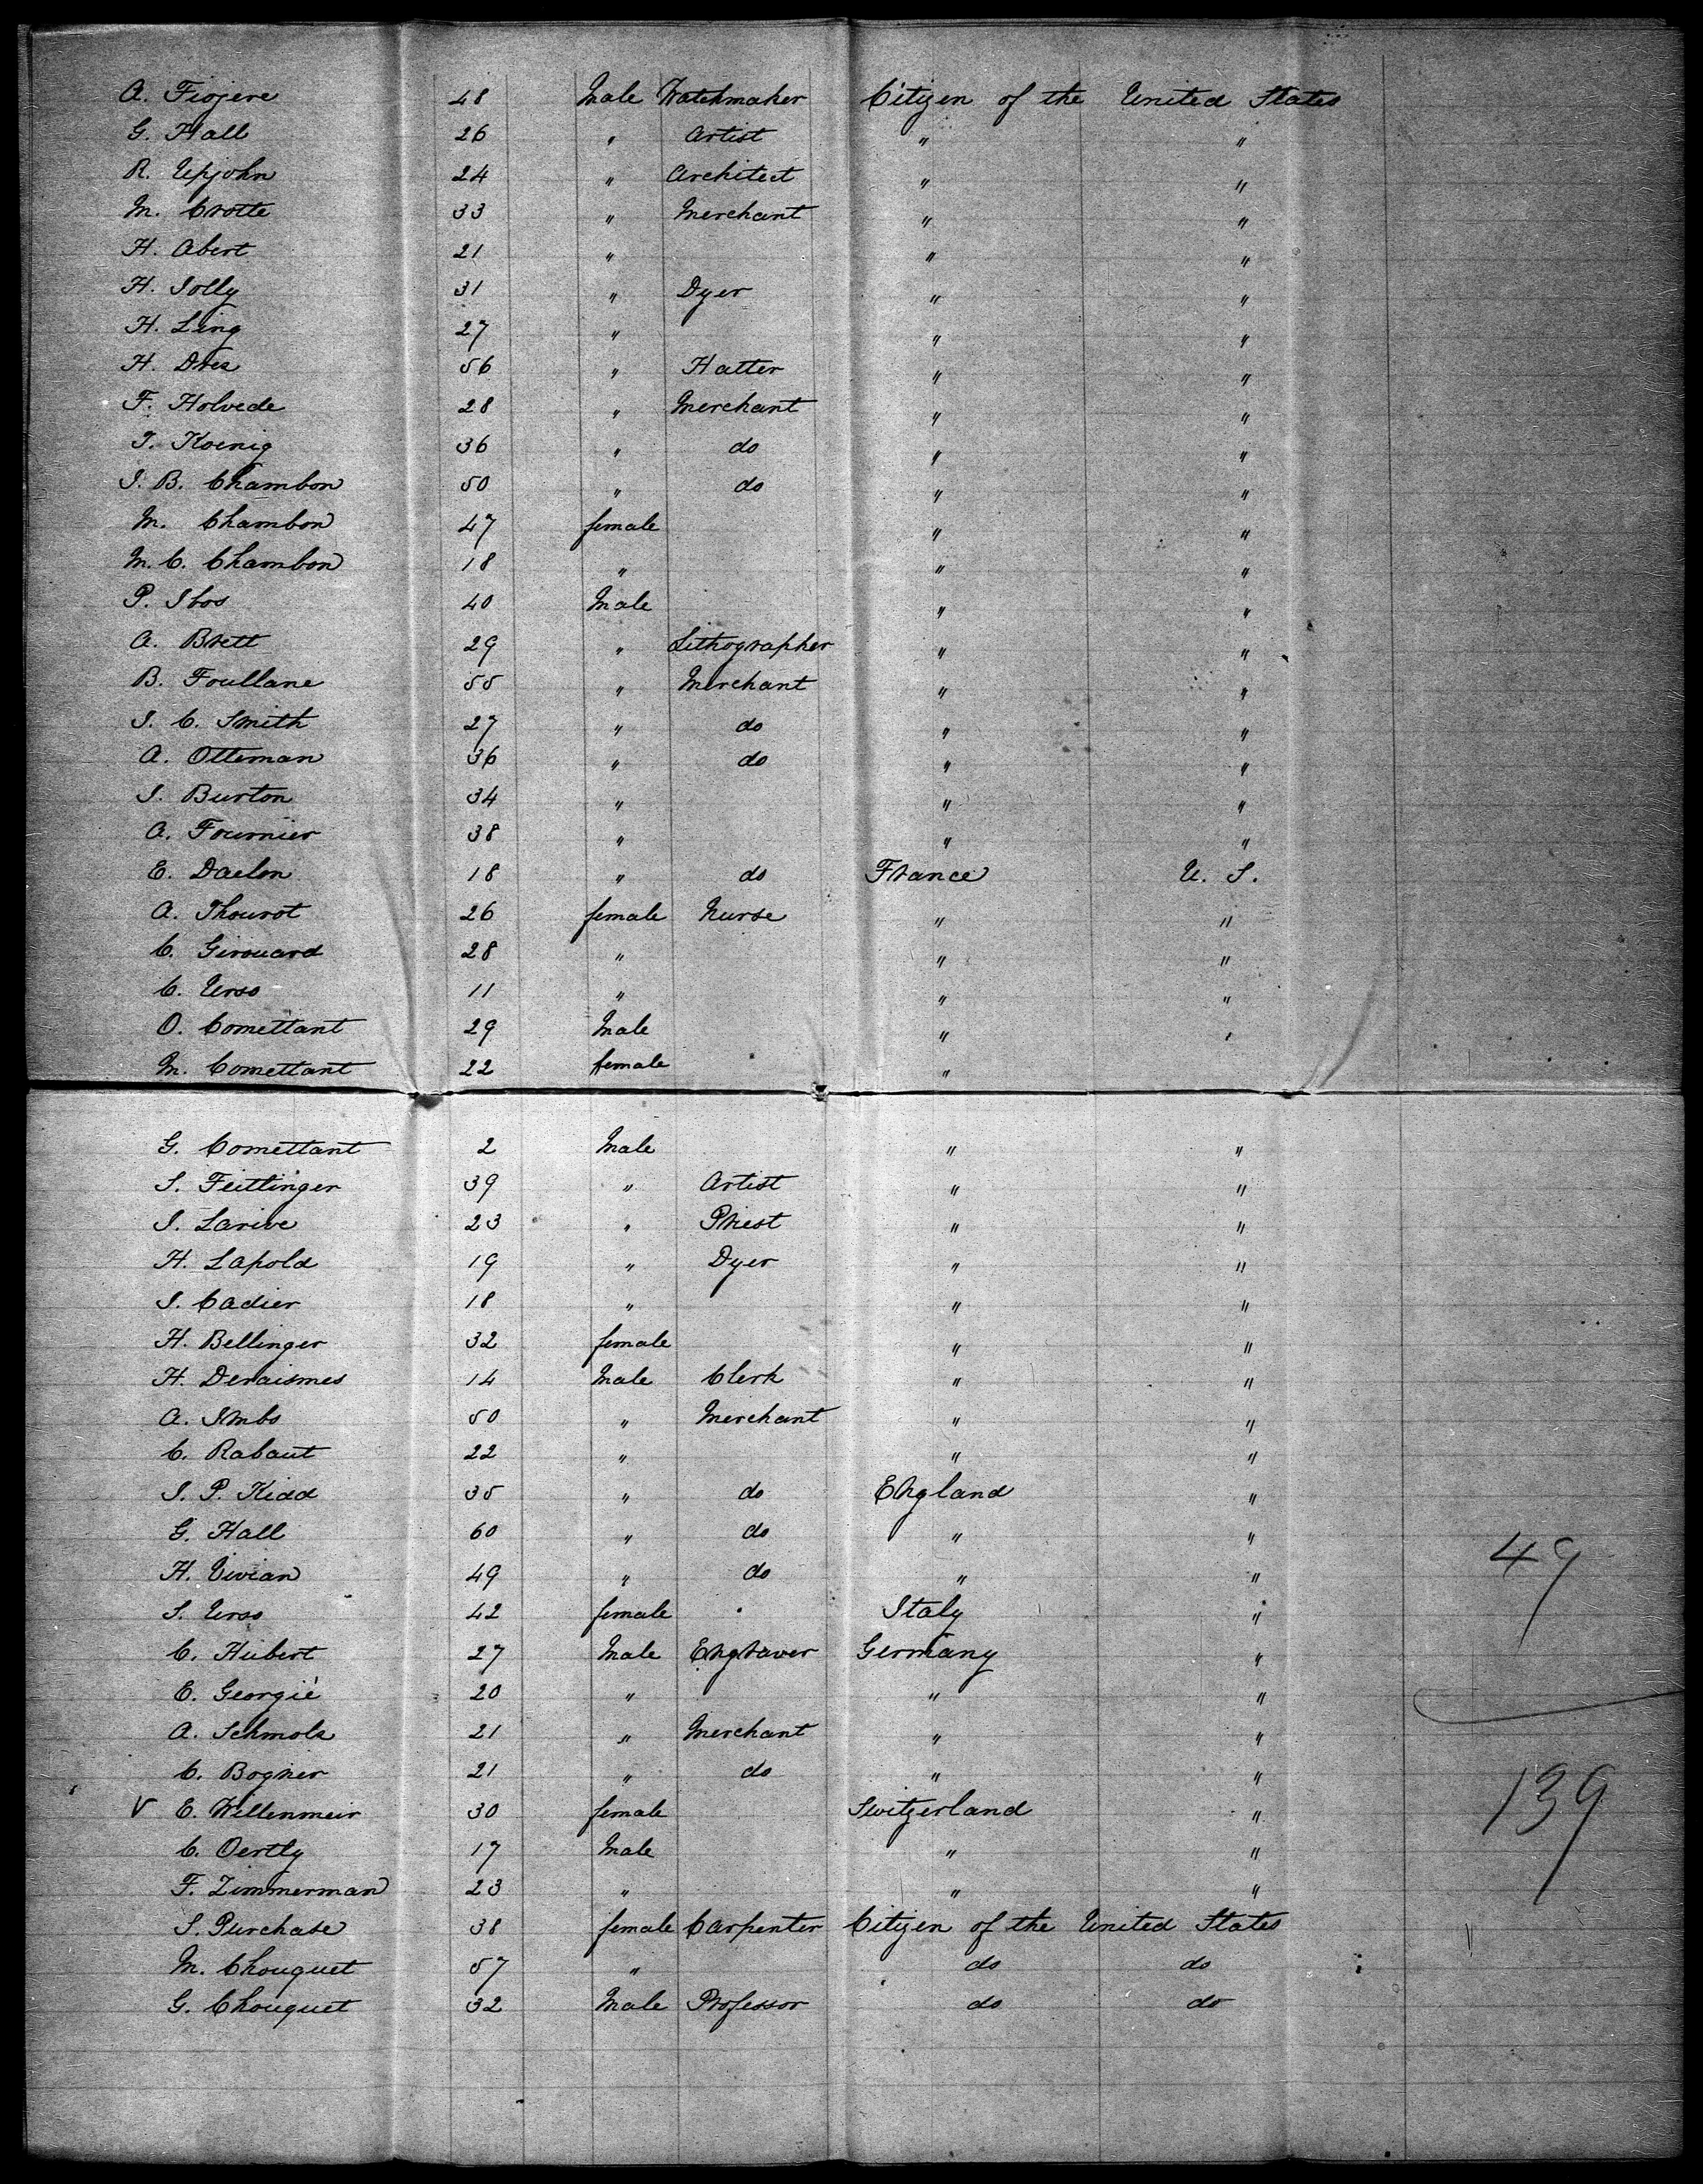 A. Fiojere 48 Male Watchmaker Citizen of the United States
G. Hall 26 " Artist " "
R. Upjohn 24 " Architect " "
M. Crotte 33 " Merchant " "
H. Abert 21 " " "
H. Jolly 31 " Dyer " "
H. Ling 27 " " "
H. Dres 56 " Hatter " "
F. Holvede 28 " Merchant " "
J. Koenig 36 " do " "
J. B. Chambon 50 " do " "
M. Chambon 47 female " "
M. C. Chambon 18 " " "
P. Ibos 40 Male " "
A. Brett 29 " Lithographer " "
B. Foullane 55 " Merchant " "
J. C. Smith 27 " do " "
A. Otteman 36 " do " "
J. Burton 34 " " "
A. Fournier 38 " " "
E. Daelon 18 " do France U. S.
A. Thourot 26 female Nurse " "
C. Girouard 28 " " "
C. Urso 11 " " "
O. Comettant 29 Male " "
M. Comettant 22 female "
G. Comettant 2 Male " "
S. Feittinger 39 " Artist " "
J. Larive 23 " Priest " "
H. Lapold 19 " Dyer " "
J. Cadier 18 " " "
H. Bellinger 32 female " "
H. Deraismes 14 Male Clerk " "
A. Imbs 50 " Merchant " "
C. Rabaut 22 " " "
J. P. Kidd 35 " do England "
G. Hall 60 " do " "
49
H. Vivian 49 " do " "
S. Urso 42 female Italy "
C. Hubert 27 Male Engraver Germany "
E. Georgié 20 " " "
A. Schmolz 21 " Merchant " "
C. Bogner 21 " do " "
139
V E. Willenmeir 30 female Switzerland "
C. Oertly 17 Male " "
F. Zimmerman 23 " " "
S. Purchase 38 female Carpenter Citizen of the United States
M. Chouquet 57 " do do
G. Chouquet 32 Male Professor do do